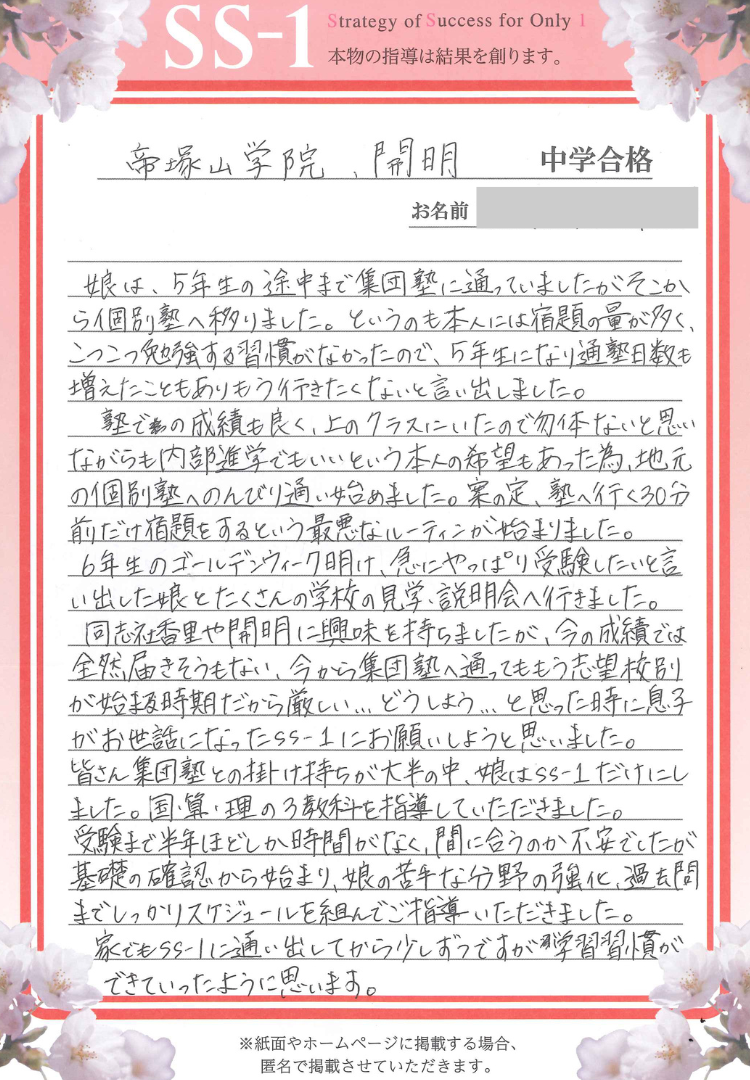 SS-1
Strategy of Success for Only 1
本物の指導は結果を創ります。
帝塚山学院、開明 中学合格
お名前
娘は、5年生の途中まで集団塾に通っていましたがそこか
ら個別塾へ移りました。というのも本人には宿題の量が多く、
こつこつ勉強する習慣がなかったので、5年生になり通塾日数も
増えたこともありもう行きたくないと言い出しました。
塾での成績も良く、上のクラスにいたので勿体ないと思い
ながらも内部進学でもいいという本人の希望もあった為、地元
の個別塾へのんびり通い始めました。案の定、塾へ行く30分
前だけ宿題をするという最悪なルーティンが始まりました。
6年生のゴールデンウィーク明け、急にやっぱり受験したいと言
い出した娘とたくさんの学校の見学・説明会へ行きました。
同志社香里や開明に興味を持ちましたが、今の成績では
全然届きそうもない、今から集団塾へ通ってももう志望校別
が始まる時期だから厳しい…どうしよう…と思った時に息子
がお世話になったSS-1にお願いしようと思いました。
皆さん集団塾との掛け持ちが大半の中、娘はSS-1だけにし
ました。国・算・理の3教科を指導していただきました。
受験まで半年ほどしか時間がなく、間に合うのか不安でしたが
基礎の確認から始まり、娘の苦手な分野の強化、過去問
までしっかりスケジュールを組んでご指導いただきました。
家でもSS-1に通い出してから少しずつですが学習習慣が
できていったように思います。
※紙面やホームページに掲載する場合、
匿名で掲載させていただきます。